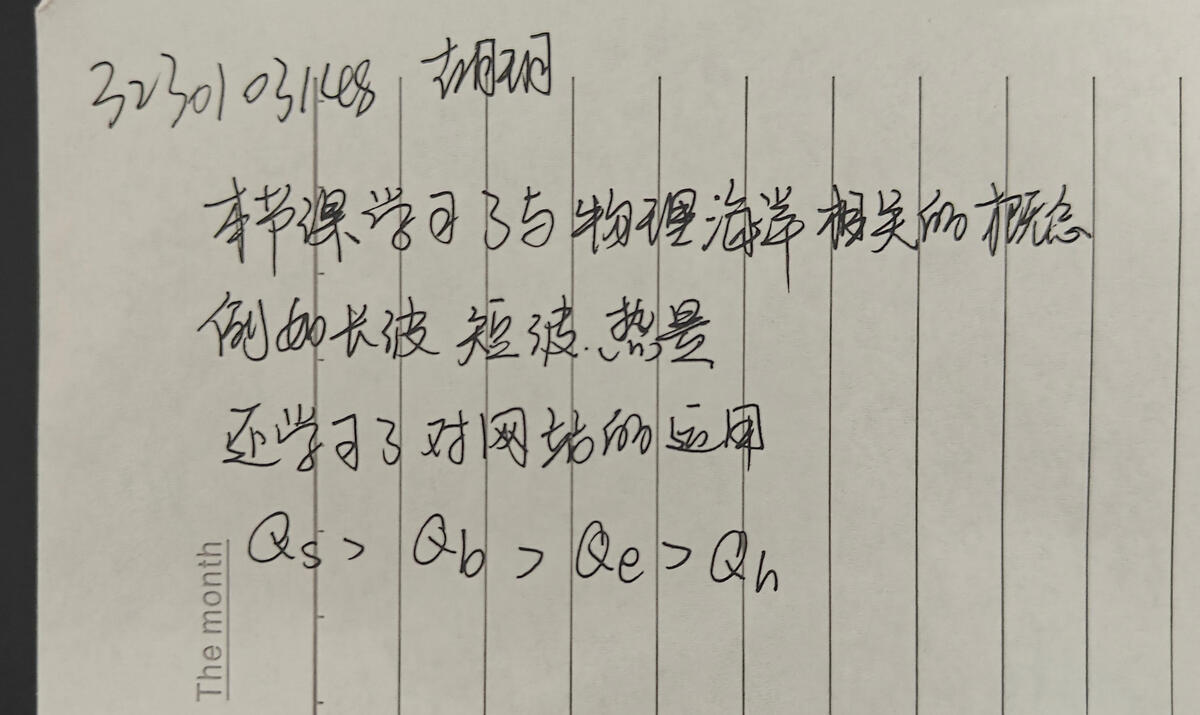 3230103148 胡玥
本节课学习了与物理海洋相关的概念
例如长波 短波.热量
还学习了对网站的运用
Qs > Qb > Qe > Qh
The month